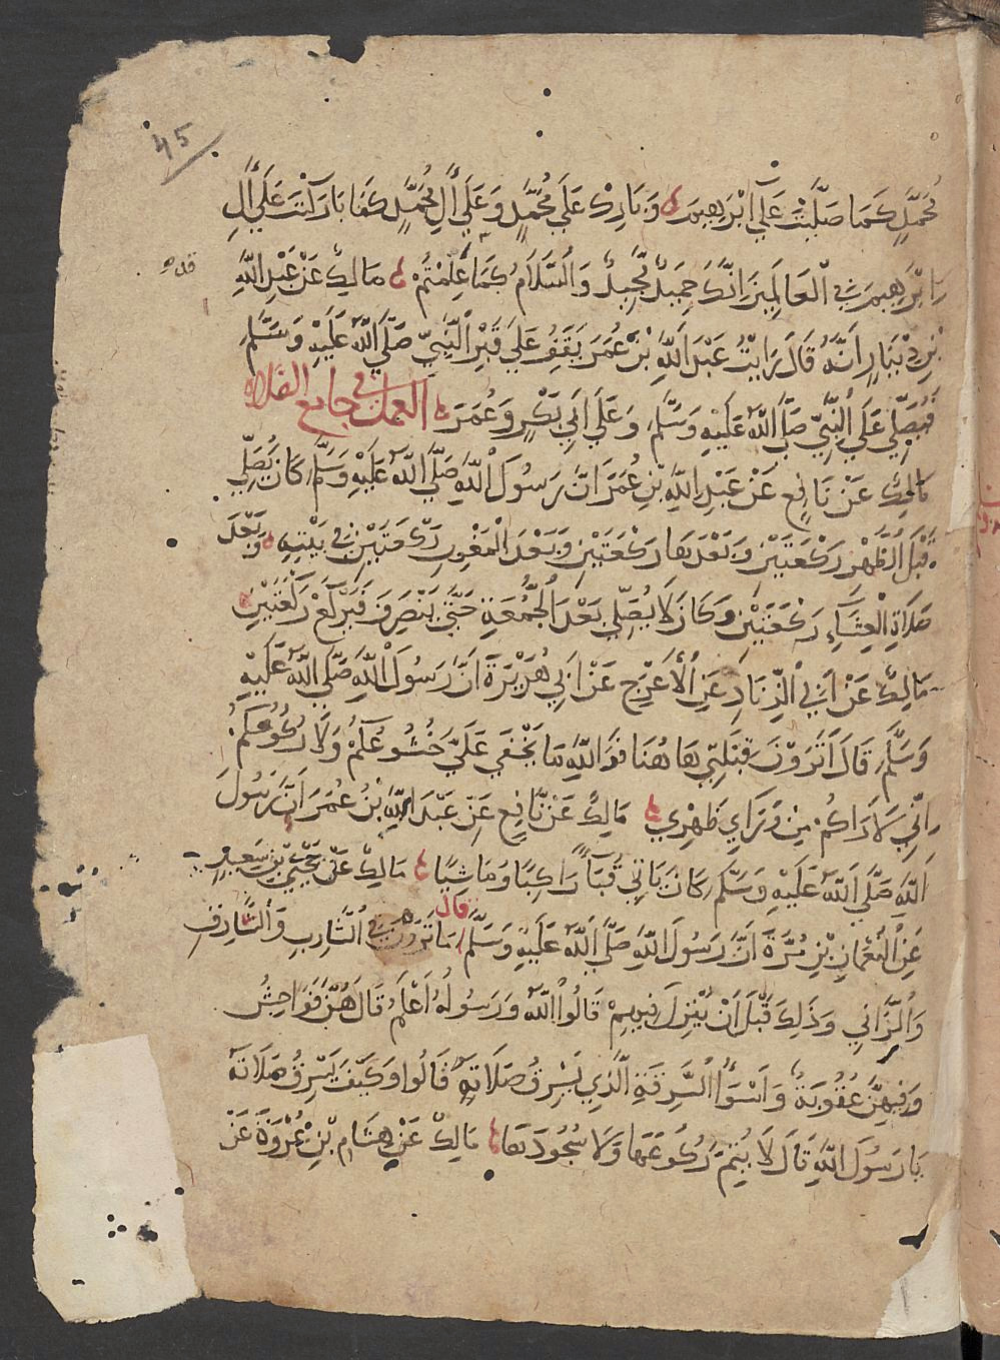 45
مُحَمَّدٍ كَمَا صَلَّيْتَ عَلَى ابْرَهِيمَ وَبَارِكْ عَلَى مُحَمَّدٍ وَعَلَى أَلِ مُحَمَّدٍ كَمَا بَارَكْتَ عَلَى أَلِ
ابْرَهِيمَ فِي الْعَالَمِينَ انَّكَ حَمِيدٌ مَّجِيدٌ وَالسَّلَامُ كَمَا عَلِمْتُمْ مَالِكٌ عَنْ عَبْدِ اللَّهِ
بْنِ دِينَارٍ انَّهُ قَالَ رَايْتُ عَبْدَ اللَّهِ بْنَ عُمَرَ يَقِفُ عَلَى قَبْرِ النَّبِيِّ صَلَّى اللَّهُ عَلَيْهِ وَسَلَّمَ
فَيُصَلِّي عَلَى النَّبِيِّ صَلَّى اللَّهُ عَلَيْهِ وَسَلَّمَ وَعَلَى أَبِي بَكْرٍ وَعُمَرَ العمل في جامع الصلاه
مَالِكٌ عَنْ نَافِعٍ عَنْ عَبْدِ اللَّهِ بْنِ عُمَرَ انَّ رَسُولَ اللَّهِ صَلَّى اللَّهُ عَلَيْهِ وَسَلَّمَ كَانَ يُصَلِّي
قَبْلَ الظُّهْرِ رَكْعَتَيْنِ وَبَعْدَهَا رَكْعَتَيْنِ وَبَعْدَ الْمَغْرِبِ رَكْعَتَيْنِ فِي بَيْتِهِ وَبَعْدَ
صَلَاةِ الْعِشَاءِ رَكْعَتَيْنِ وَكَانَ لَا يُصَلِّي بَعْدَ الْجُمُعَةِ حَتَّى يَنْصَرِفَ فَيَرْكَعَ رَكْعَتَيْنِ
مَالِكٌ عَنْ ابِي الزِّنَادِ عَنِ الْأَعْرَجِ عَنْ ابِي هُرَيْرَةَ انَّ رَسُولَ اللَّهِ صَلَّى اللَّهُ عَلَيْهِ
وَسَلَّمَ قَالَ اتَرَوْنَ قِبْلَتِي هَاهُنَا فَوَاللَّهِ مَا يَخْفَى عَلَيَّ خُشُوعُكُمْ وَلَا رُكُوعُكُمْ
انِّي لَارَاكُمْ مِنْ وَرَاي ظَهْرِي مَالِكٌ عَنْ نَافِعٍ عَنْ عَبْدِ اللَّهِ بْنِ عُمَرَ انَّ رَسُولَ
اللَّهِ صَلَّى اللَّهُ عَلَيْهِ وَسَلَّمَ كَانَ يَاتِي قُبَآءً رَاكِبًا وَمَاشِيًا مَالِكٌ عَنْ يَحْيَى بْنِ سَعِيدٍ
عَنِ النُّعْمَانِ بْنِ مُرَّةَ انَّ رَسُولَ اللَّهِ صَلَّى اللَّهُ عَلَيْهِ وَسَلَّمَ قال مَا تَرَوْنَ فِي الشَّارِبِ وَالسَّارِقِ
وَالزَّانِي وَذَلِكَ قَبْلَ انْ يُنْزَلَ فِيهِمْ قَالُوا اللَّهُ وَرَسُولُهُ اعْلَمُ قَالَ هُنَّ فَوَاحِشُ
وَفِيهِنَّ عُقُوبَةٌ وَاسْوَأُ السَّرِقَةِ الَّذِي يَسْرِقُ صَلَاتَهُ قَالُوا وَكَيْفَ يَسْرِقُ صَلَاتَهُ
يَا رَسُولَ اللَّهِ قَالَ لَا يُتِمُّ رُكُوعَهَا وَلَا سُجُودَهَا مَالِكٌ عَنْ هِشَامِ بْنِ عُرْوَةَ عَنْ